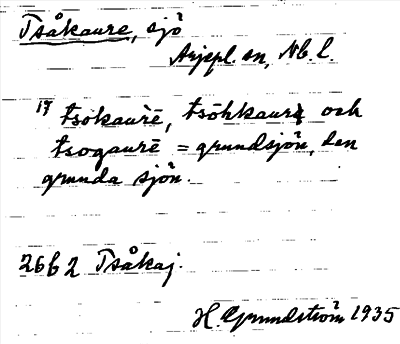 Tsåkaure, sjö
Arjepl. sn, Nb. l.
17 tsòkaùrē, tsöhkaurē och
tsogaurē = grundsjön, den
grunda sjön.
26b2 Tsåkaj.
H. Grundström 1935